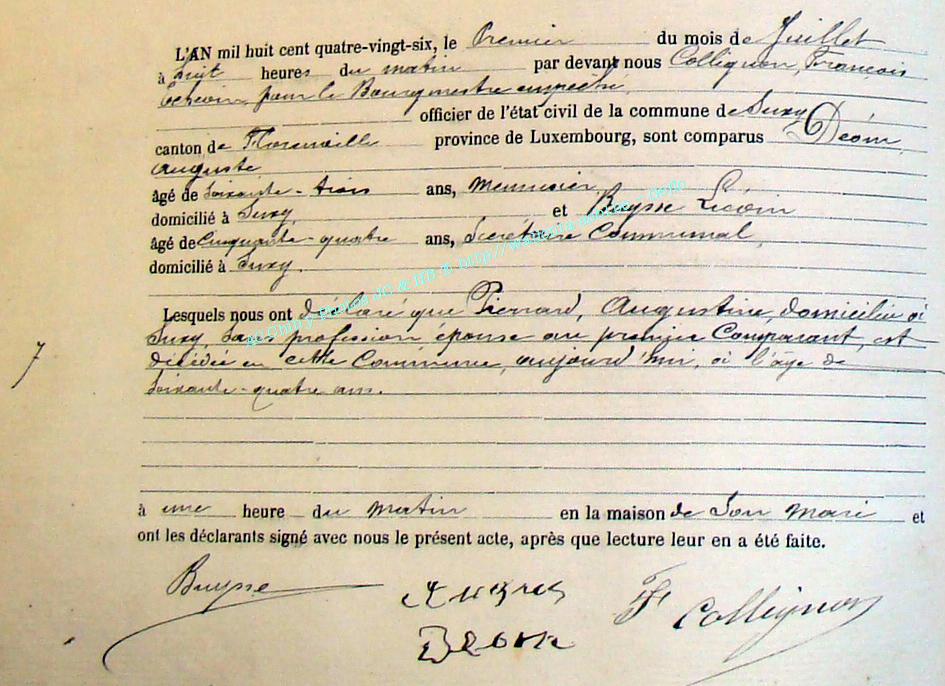 L'AN mil huit cent quatre-vingt-six, le Premier du mois de Juillet
à huit heures du matin par devant nous Collignon, François
Echevin, pour le Bourgmestre empêché,
officier de l'état civil de la commune de Suxy
canton de Florenville province de Luxembourg, sont comparus Déom,
Auguste,
âgé de soixante-trois ans, Menuisier,
domicilié à Suxy, et Buysse
âgé de Cinquante-quatre ans, Secrétaire Communal,
domicilié à Suxy.
Lesquels nous ont déclaré que Pierrard, Augustine, domiciliée à
Suxy, sans profession, épouse au premier Comparant, est
décédée en cette Commune, aujourd'hui, à l'âge de
soixante-quatre ans.
7
à une heure du matin en la maison de Son Mari et
ont les déclarants signé avec nous le présent acte, après que lecture leur en a été faite.
Buysse
F Collignon
Deom